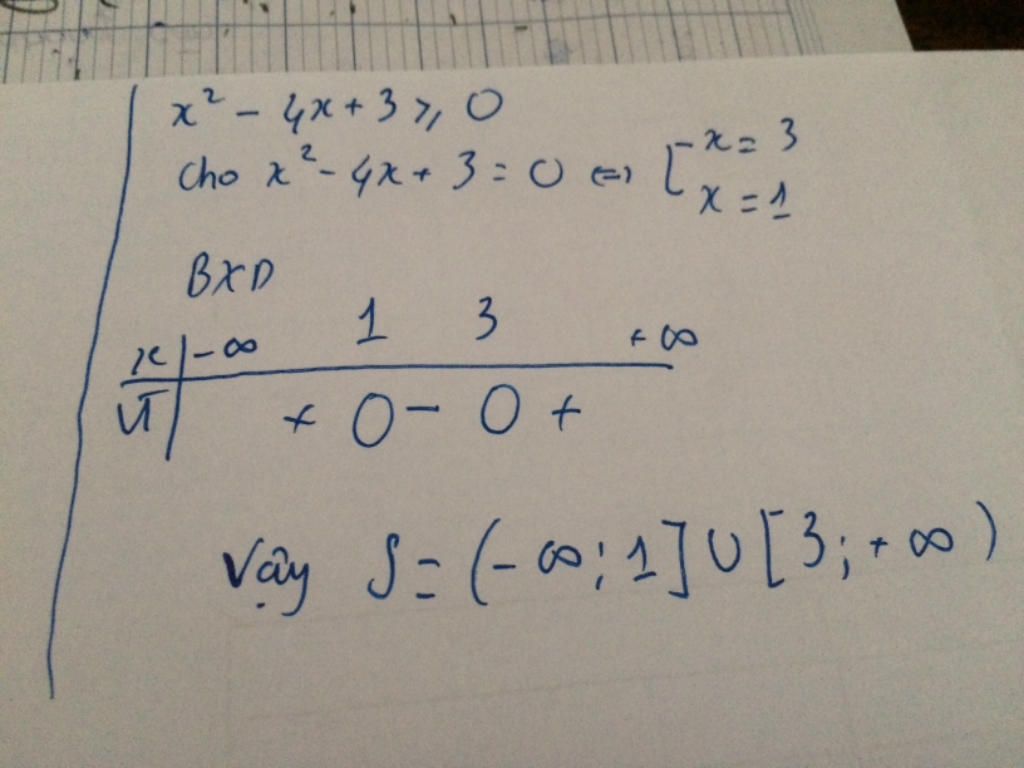 x² - 4x + 3 ≥ 0
Cho x² - 4x + 3 = 0 ⇔ [ x = 3
x = 1
BXD
x | -∞ 1 3 +∞
VT | + 0 - 0 +
Vậy S = (-∞; 1] ∪ [3; +∞)